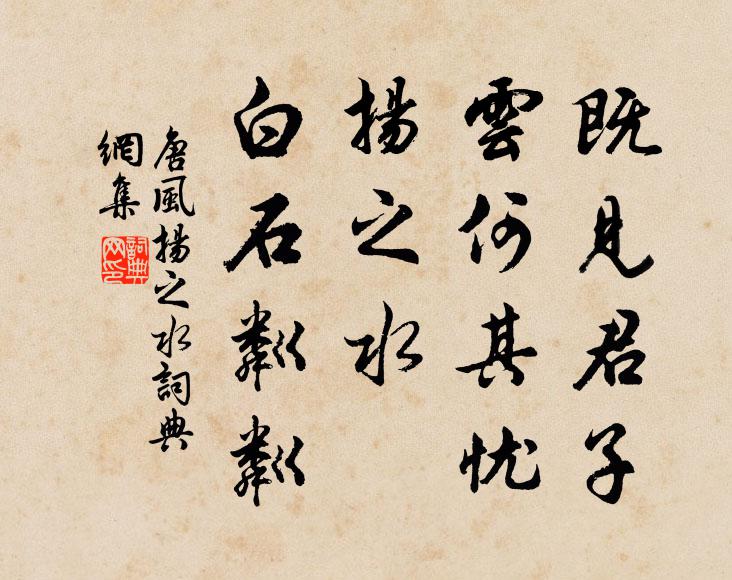 既見君子
雲何其忧
揚之水
白石粼粼
唐風揚之水詞典
網集
詞典
网印